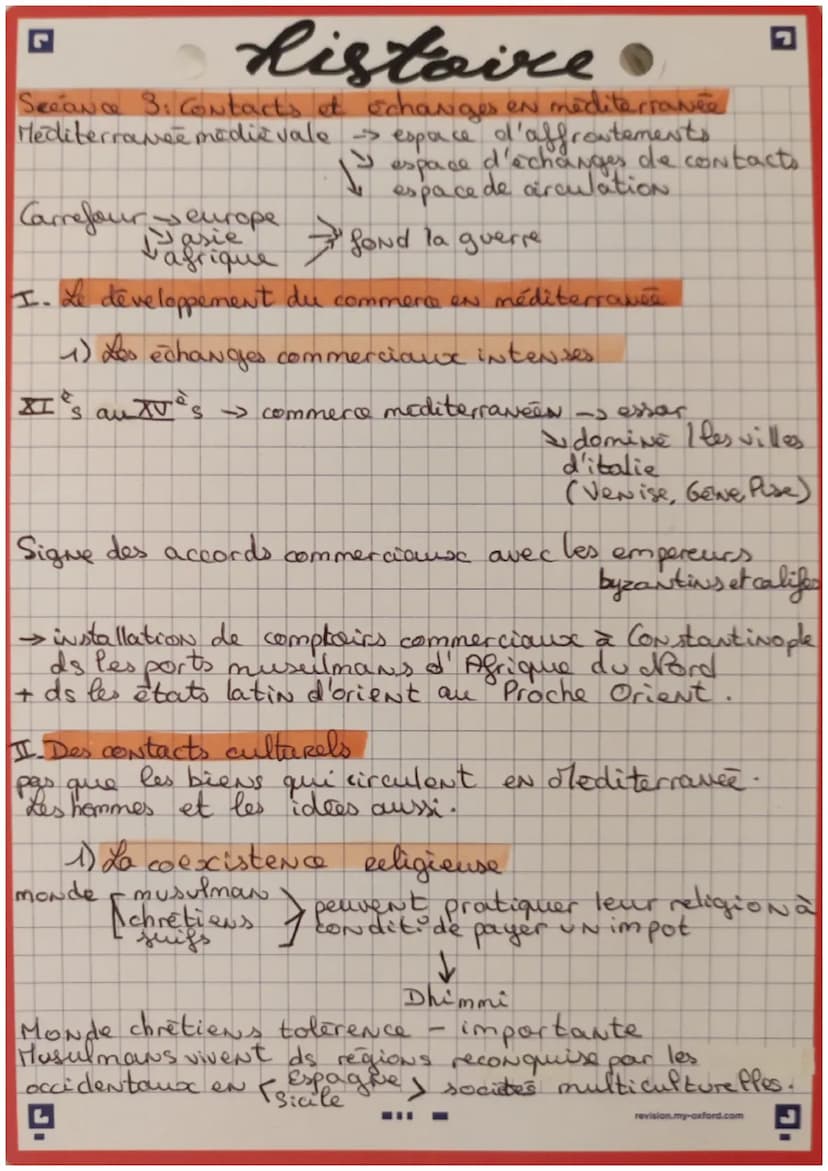 Histoire
Sceéance 3: Contacts et échanges en méditerranée
Méditerranée mediévale → espace d'affrontements
↘ espace d'échanges de contacts
↓ espace de circulation
Carrefour → europe
↘ asie → fond la guerre
↓ afrique
I. Le développement du commerce en méditerranée
1) Les échanges commerciaux intenses
XIè s au XVè s → commerce mediterranéen → essor
↘ dominé / les villes
d'italie
(Venise, Gêne, Pise)
Signe des accords commerciaux avec les empereurs
byzantins et califes
→ installation de comptoirs commerciaux à Constantinople
ds les ports musulmans d'Afrique du Nord
+ ds les états latin d'orient au Proche Orient.
II. Des contacts culturels
pas que les biens qui circulent en Méditerranée.
Les hommes et les idées aussi.
1) La coexistence religieuse
monde musulman
chrétiens peuvent pratiquer leur religion à
juifs conditi° de payer un impot
↓
Dhimmi
Monde chrétiens tolérence - importante
Musulmans vivent ds régions reconquise par les
occidentaux en Espagne > sociétés multiculturelles.
Sicile
revision.my-oxford.com